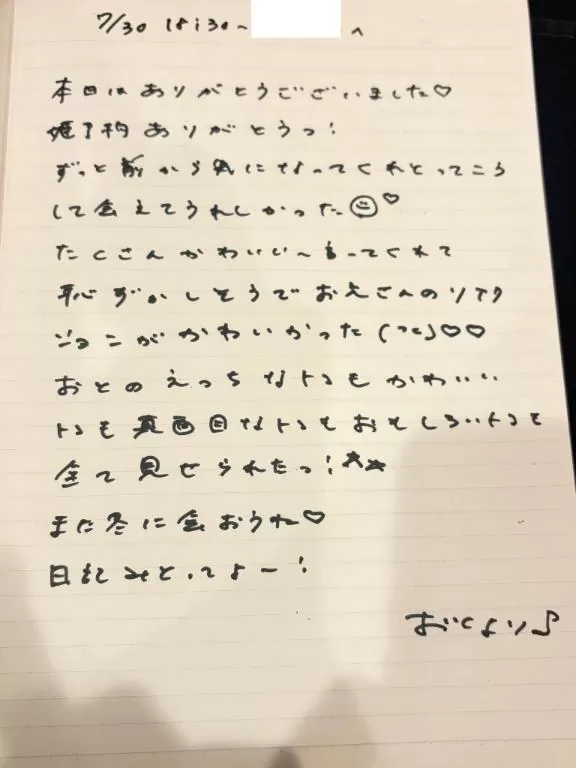 7/30 18:30~
へ
本日はありがとうございました♡
姫予約ありがとうっ!
ずっと前から気になってくれとってこう
して会えてうれしかった☺♡
たくさんかわいい~言ってくれて
恥ずかしそうでお兄さんのリアク
ションがかわいかった( つᴗ )♡♡
おとのえっちなトコもかわいい
トコも真面目なトコもおもしろいトコも
全て見せられたっ!☆☆
また冬に会おうね♡
日記みとってよー!
おとより♪